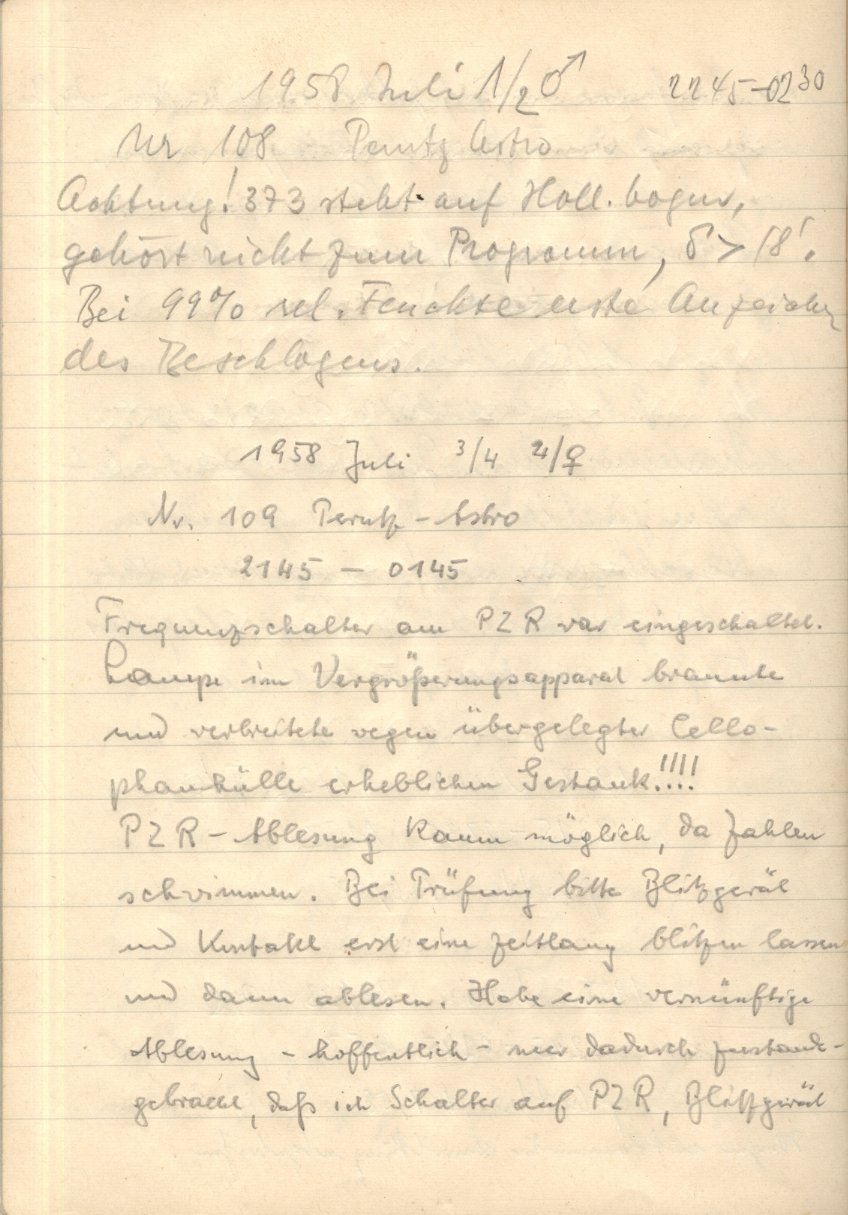 1958 Juli 1/2 ♂ 2245-0230
Nr 108 Perutz Astro
Achtung! 373 steht auf Holl.bogen,
gehört nicht zum Programm, δ > 18'.
Bei 99% rel. Feuchte erste Anzeichen
des Beschlagens.
1958 Juli 3/4 ♃/♀
Nr. 109 Perutz-Astro
2145 - 0145
Frequenzschalter am PZR war eingeschaltet.
Lampe im Vergrößerungsapparat brannte
und verbreitete wegen übergelegter Cello-
phanhülle erheblichen Gestank!!!!
PZR-Ablesung kaum möglich, da Zahlen
schwimmen. Bei Prüfung bitte Blitzgerät
und Kontakt erst eine Zeitlang blitzen lassen
und dann ablesen. Habe eine vernünftige
Ablesung - hoffentlich - nur dadurch zustande-
gebracht, daß ich Schalter auf PZR, Blitzgerät